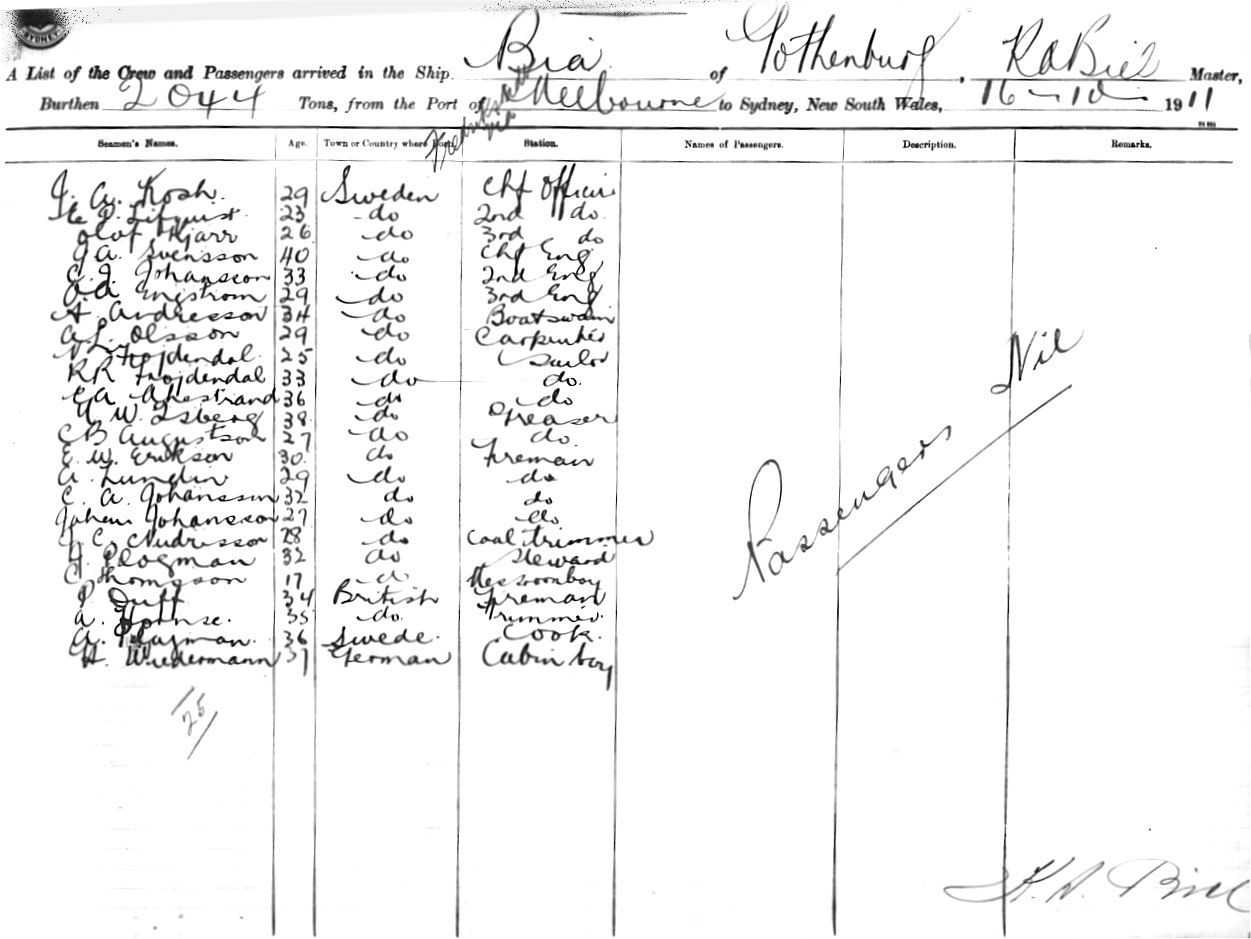 SYDNEY
A List of the Crew and Passengers arrived in the Ship Bia of Gothenburg, K A Biel Master,
Burthen 2044 Tons, from the Port of Fredrikstad via Melbourne to Sydney, New South Wales, 16 - 10 - 1911
Seamen's Names. Age. Town or Country where Born. Station. Names of Passengers. Description. Remarks.
J. A. Kosh. 29 Sweden Chf Officer
23 do 2nd do
Olof Kjarr 26 do 3rd do
J A. Svensson 40 do Chf Eng
C. J. Johansson 33 do 2nd Eng
O. A Engstrom 29 do 3rd Eng
A. Andresson 34 do Boatswain
A L. Olsson 29 do Carpenter
Frojdendal. 25 do Sailor
K R Frojdendal 33 do do.
E A Ahlestrand 36 do do
W. Isberg 38 do Greaser
C B Augustson 27 do do.
E. W. Erikson 30. do Fireman
A. Lundin 29 do do
C. A. Johansson 32 do do
Johan Johansson 27 do do
J. C. Andresson 28 do Coal trimmer
H. Plogman 32 do Steward
C Thomsson 17 do Messroomboy
P. Duff 34 British Fireman
A. 35 do. Trimmer
A. Plogman. 36 Swede. Cook.
H. Wiedermann 37 German Cabin boy
Passengers Nil
25
K. A. Biel